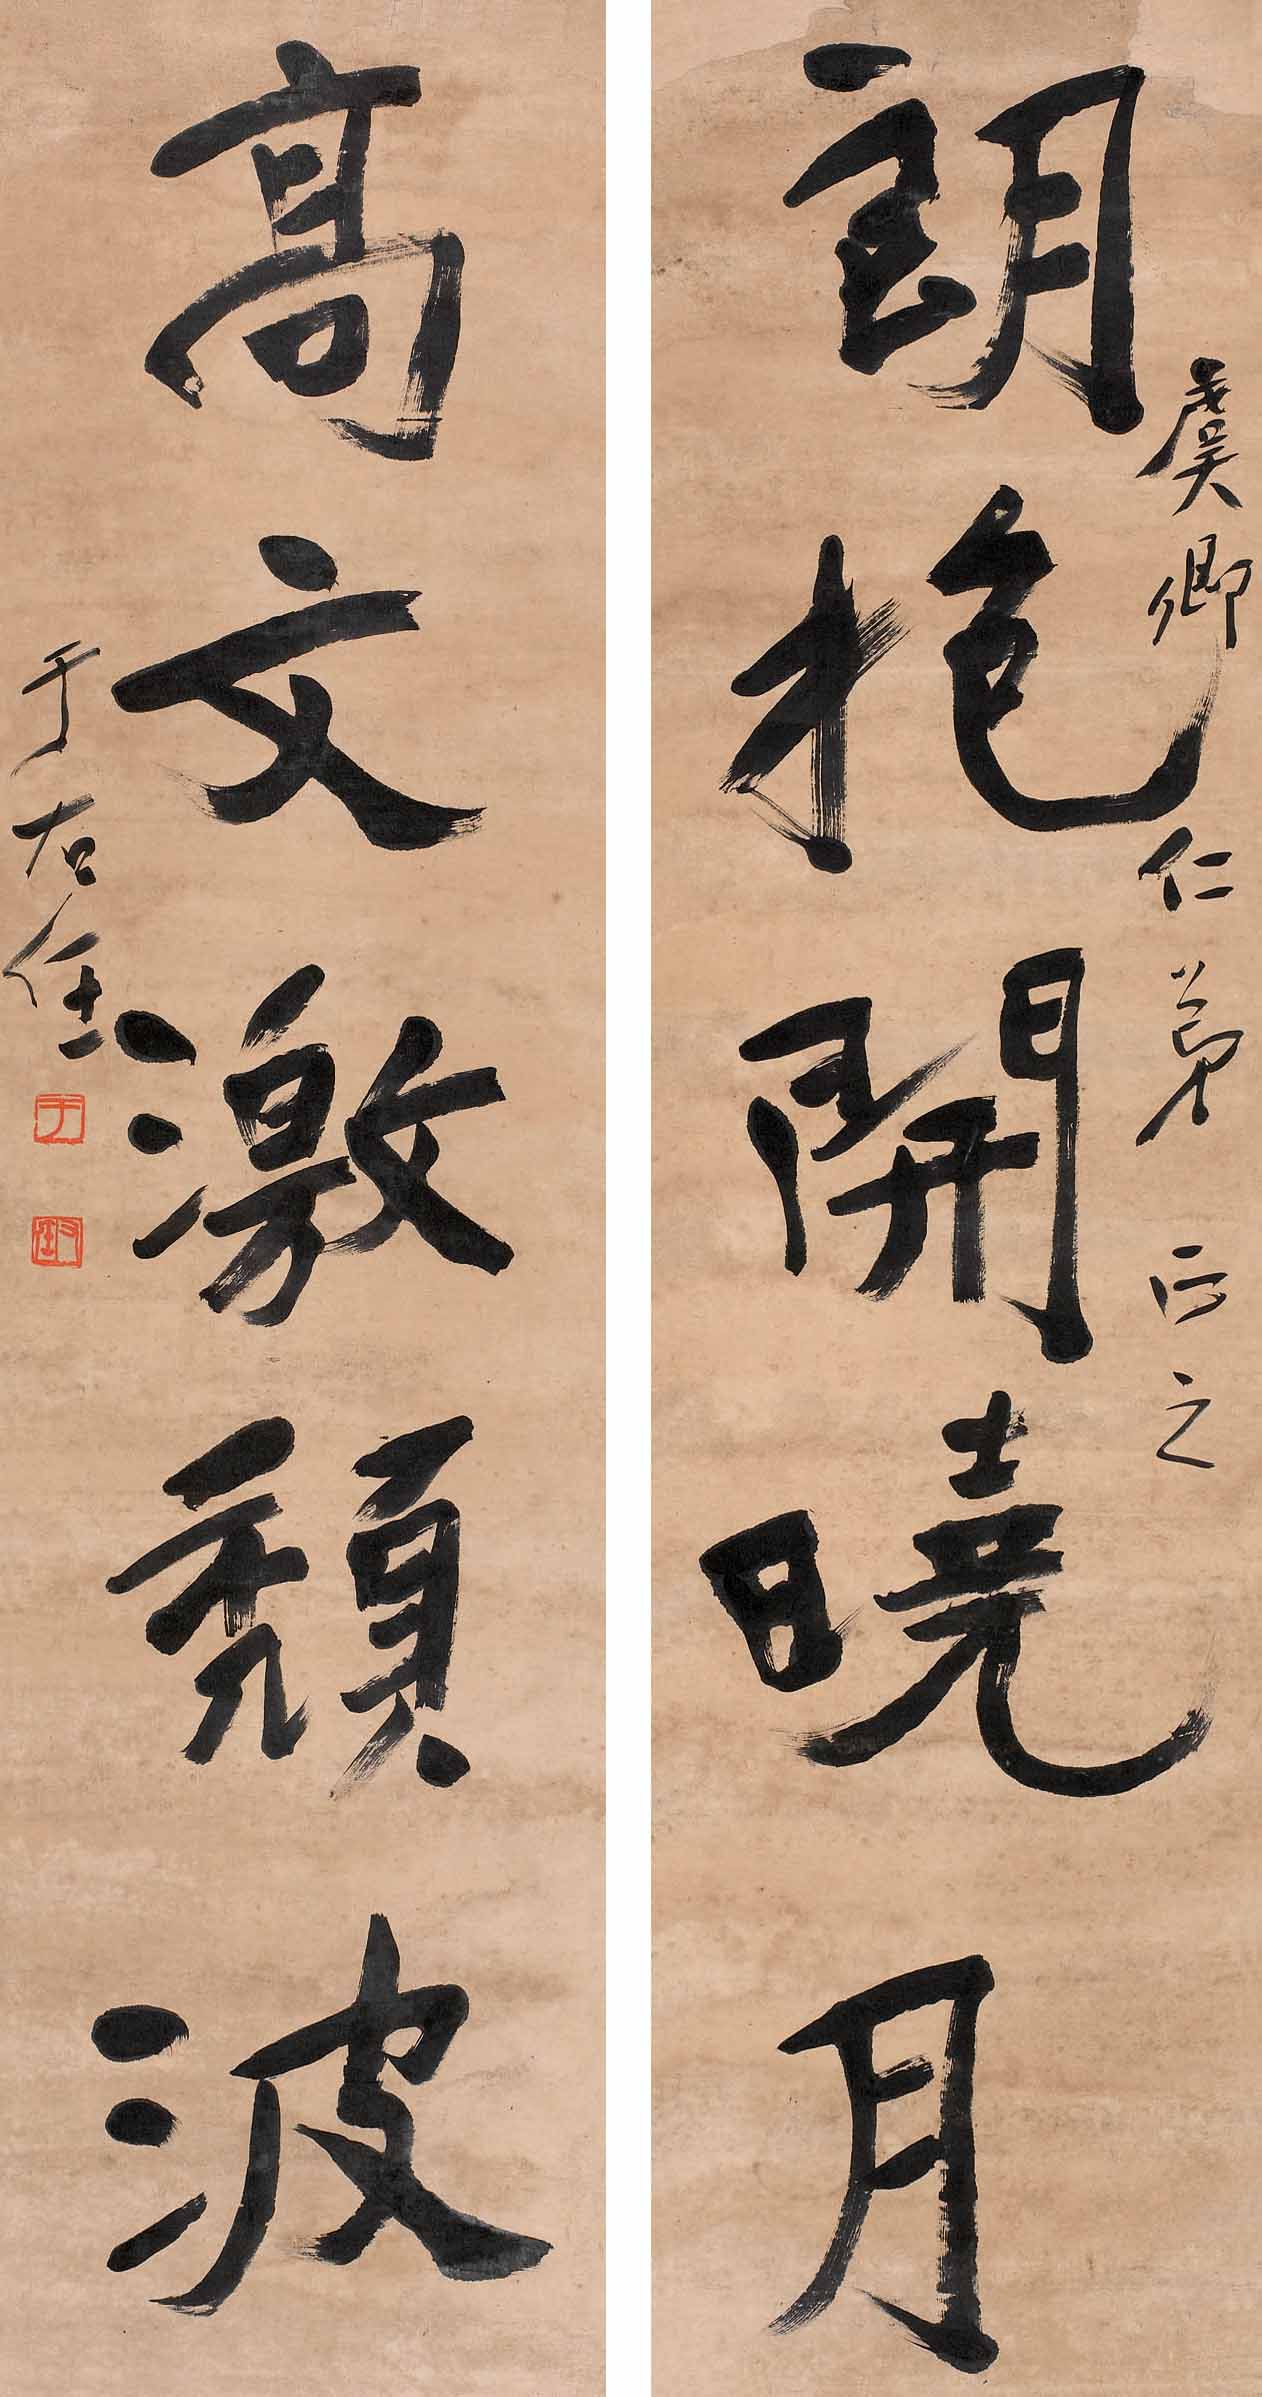 朗抱開曉月
虞卿仁弟正之
高文激頹波
于右任
于
右任